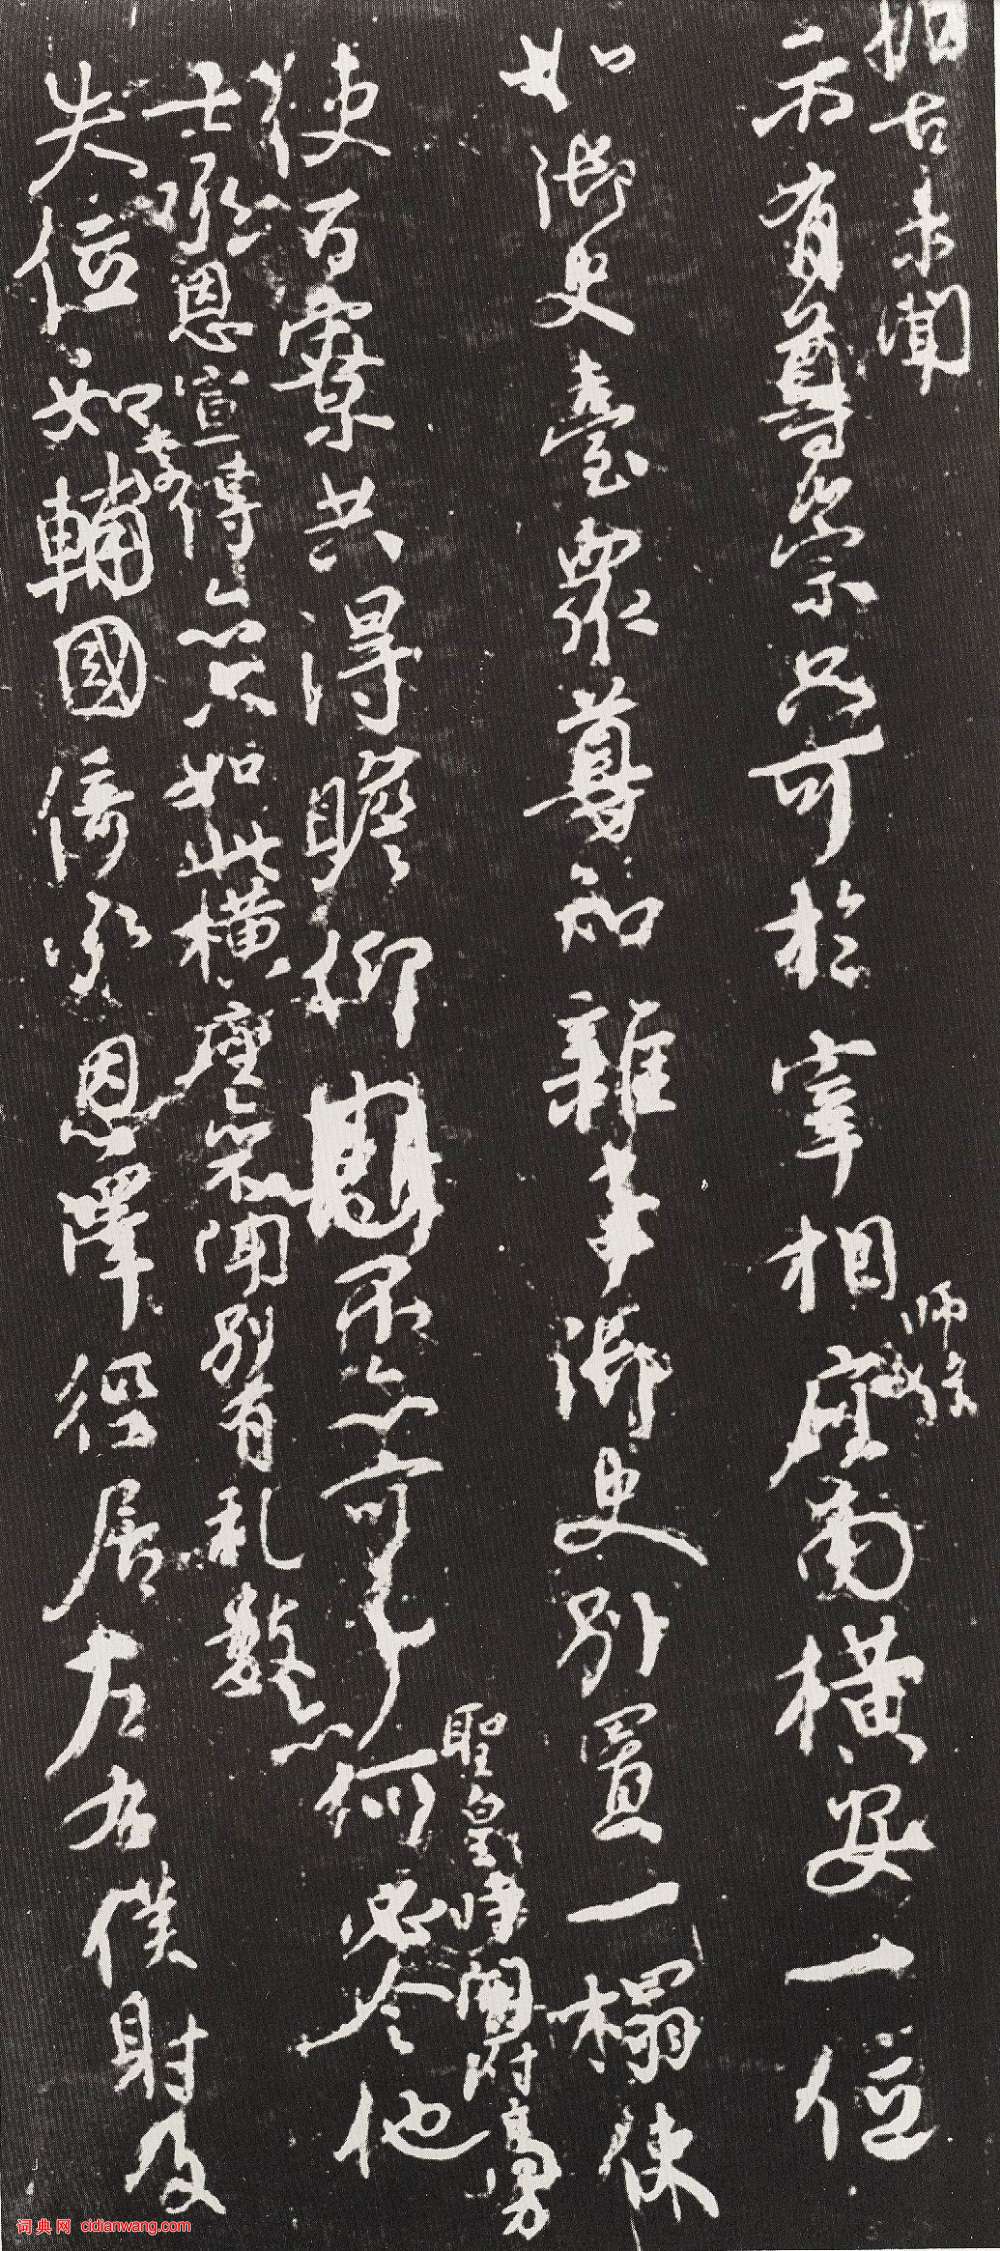 古未聞
示有尊崇只可於宰相座南橫安一位
師保
如御史臺衆尊知雜事御史別置一榻使
使百寮共得瞻仰不亦可乎何必令他
聖皇時開府高力
士承恩宣傳亦只如此橫座亦不聞別有礼數亦
失位如李輔國倚承恩澤徑居左右僕射及
词典网 cidianwang.com